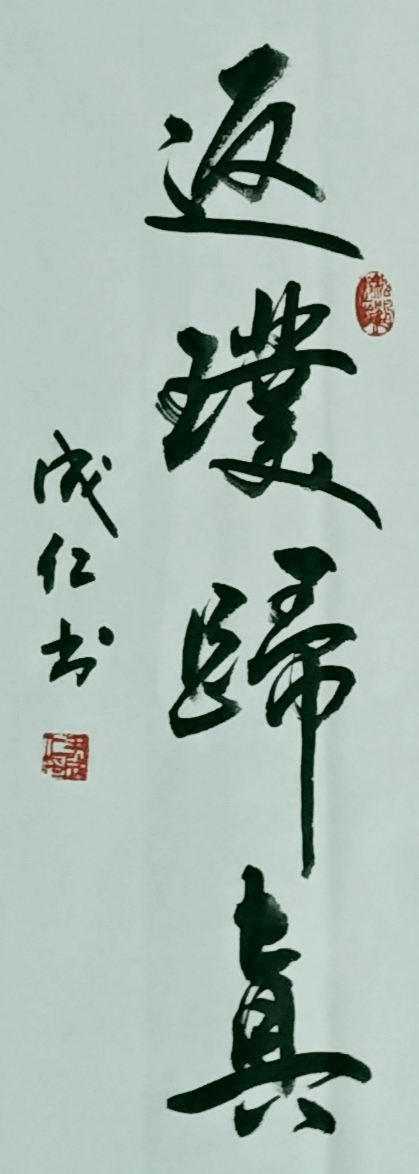 返璞歸真
成仁书